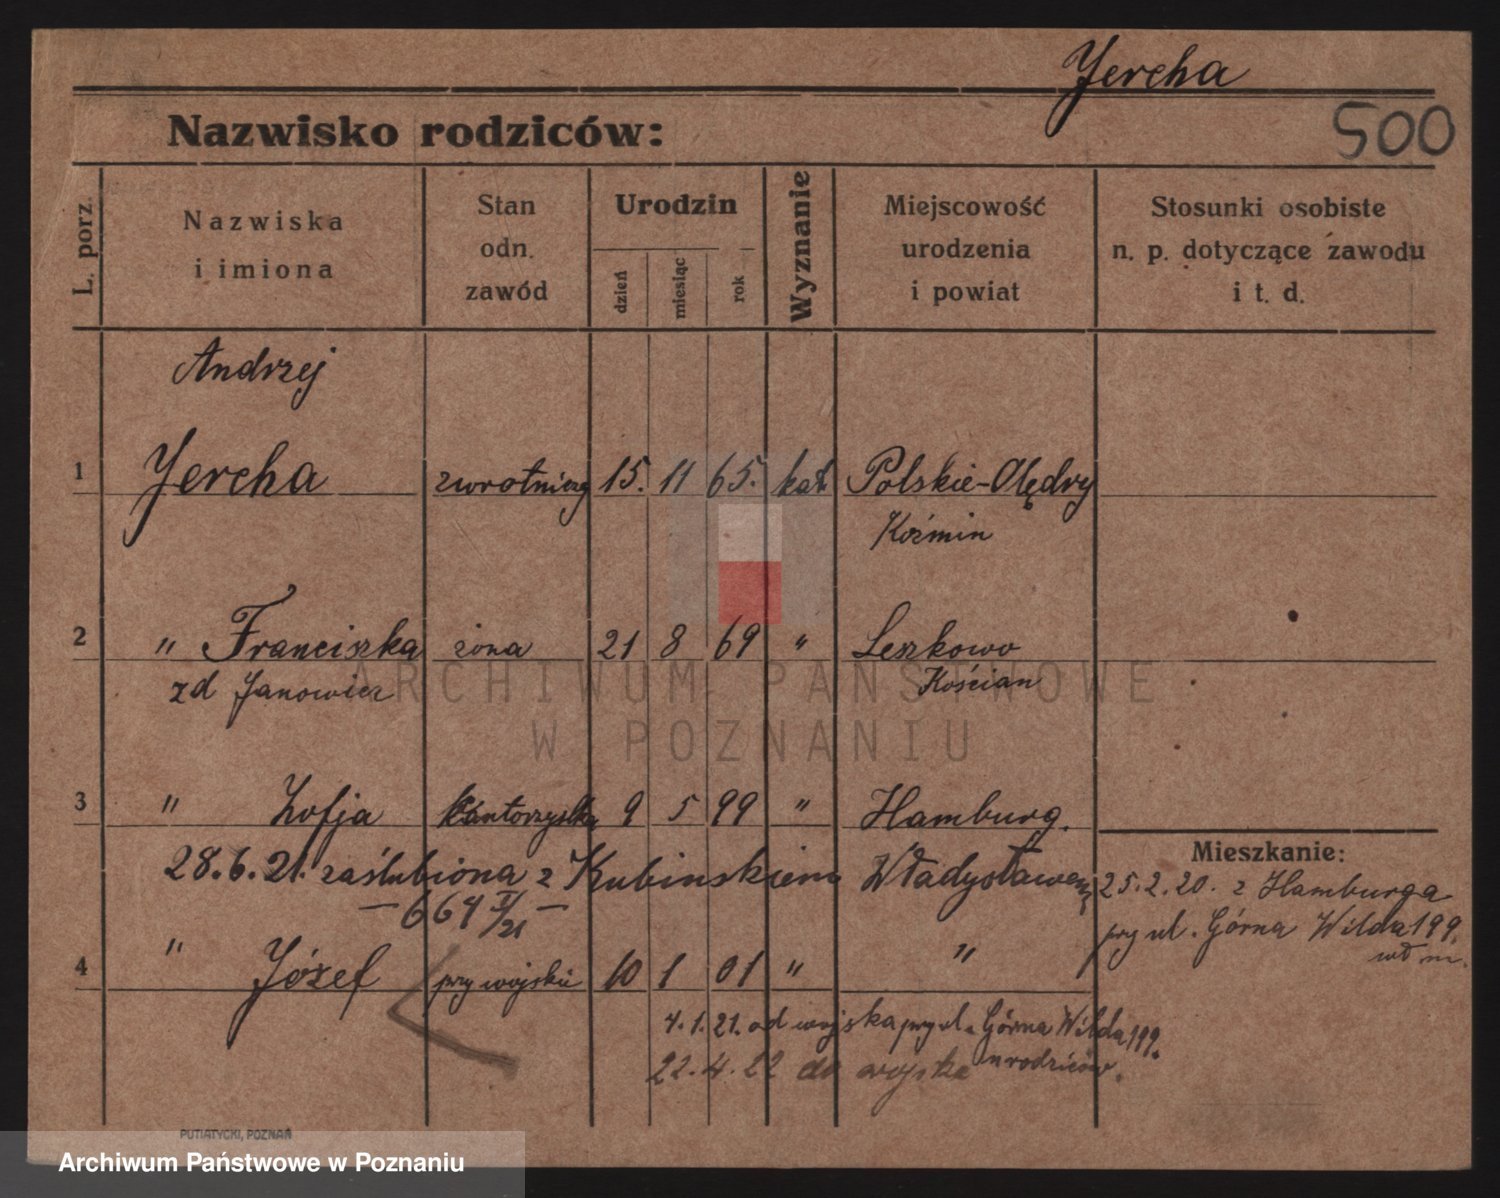 Jercha
500
Nazwisko rodziców:
L. porz.
Nazwiska
i imiona
Stan
odn.
zawód
Urodzin
dzień
miesiąc
rok
Wyznanie
Miejscowość
urodzenia
i powiat
Stosunki osobiste
n. p. dotyczące zawodu
i t. d.
Andrzej
1 Jercha zwrotniczy 15. 11 65. kat. Polskie-Olędry
Koźmin
2 " Franciszka żona 21 8 69 " Leszkowo
zd Janowicz Kościan
ARCHIWUM PAŃSTWOWE
W POZNANIU
3 " Zofja kantorzystka 9 5 99 " Hamburg.
28.6.21. zaślubiona z Kubinskiem Władysławem
— 664 I/21 —
4 " Józef przy wojsku 10 1 01 " "
4.1.21. od wojska przy ul. Górna Wilda 199.
u rodziców.
22.4.22 do wojska
Mieszkanie:
25.2.20. z Hamburga
przy ul. Górna Wilda 199.
wł m.
PUTIATYCKI, POZNAŃ
Archiwum Państwowe w Poznaniu